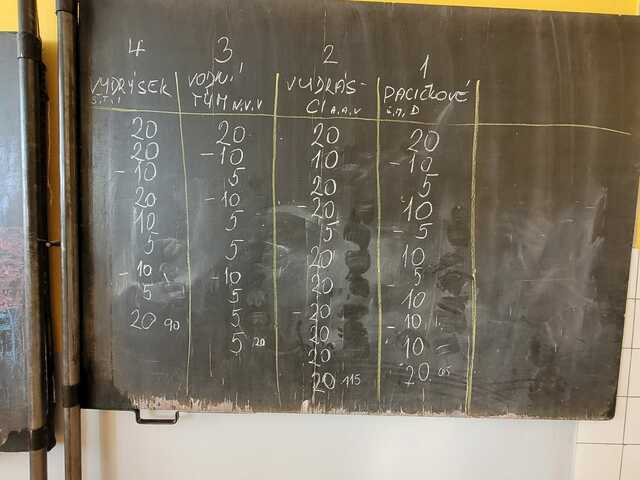 4 3 2 1
VYDRÝSEK VODNÍ VUDRÁS- PACIČKOVÉ
TÝM N.V.V CI A.A.V
20 20 20 20
20 -10 10 -10
-10 5 20 5
20 -10 -20 10
10 5 5 -5
5 5 20 10
-10 -10 20 -5
5 5 -20 10
20 90 5 20 -10
5 20 20 10
20 115 20